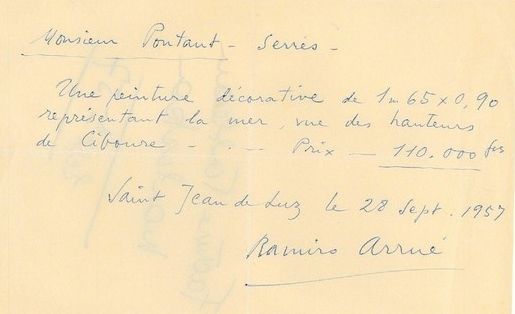 Monsieur Pontaut - Serrès -
Une peinture décorative de 1m65 x 0,90
représentant la mer, vue des hauteurs
de Ciboure - - - Prix - 110.000 frs
Saint Jean de Luz le 28 Sept. 1957
Ramiro Arrué